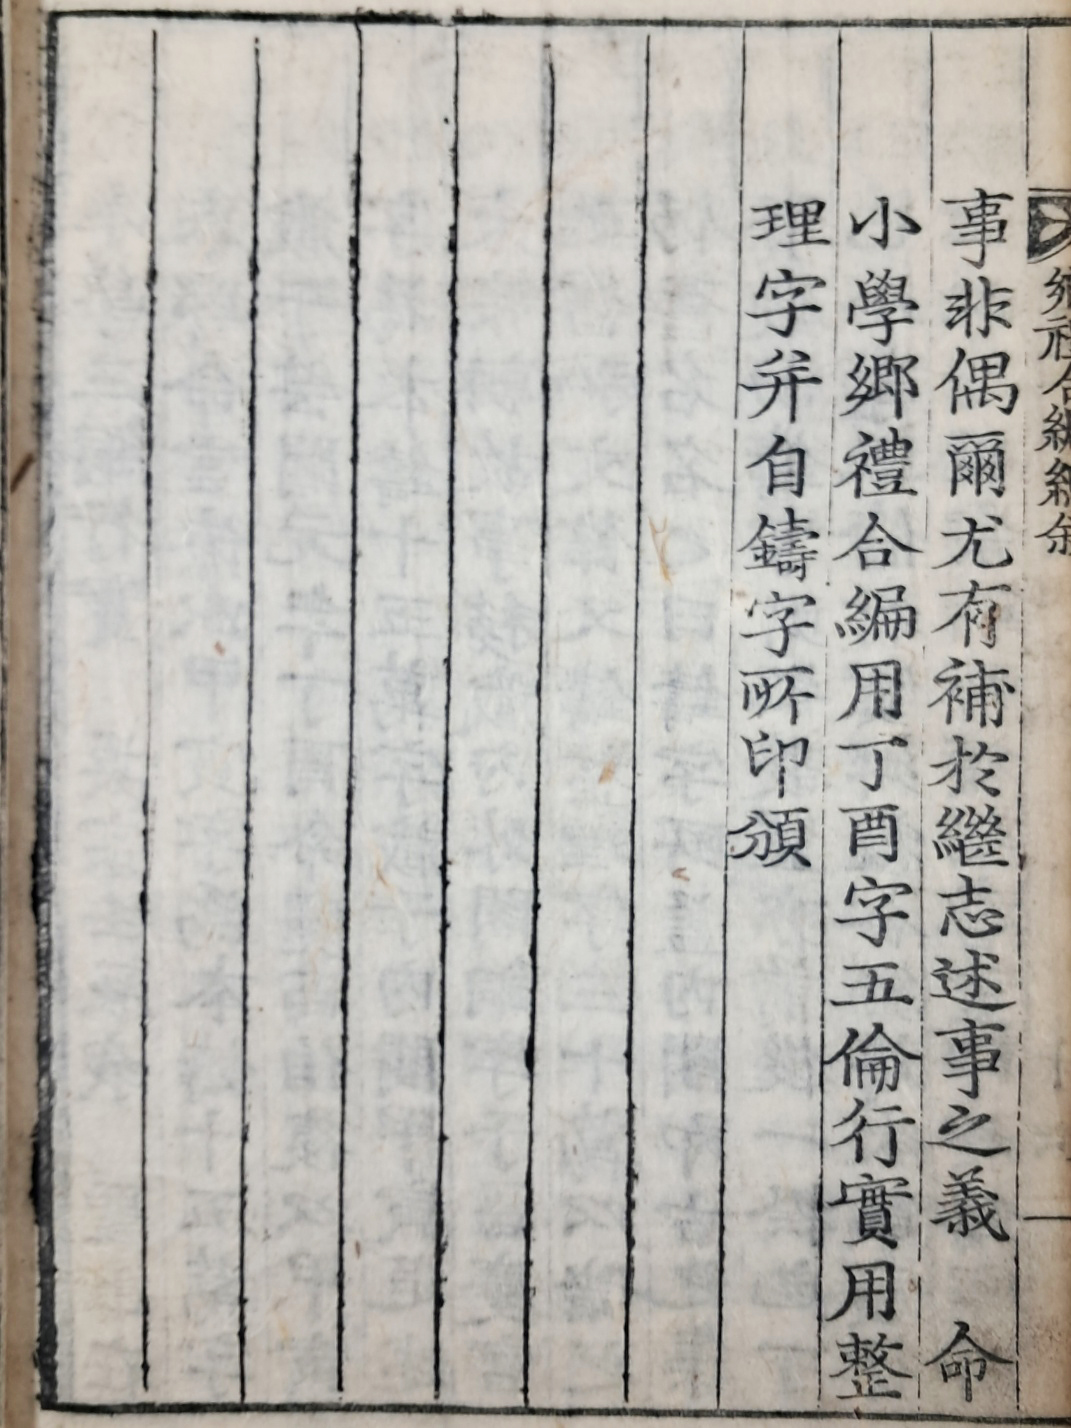 鄉禮合編總叙
事非偶爾尤有補於繼志述事之義　命
小學鄉禮合編用丁酉字五倫行實用整
理字并自鑄字所印頒